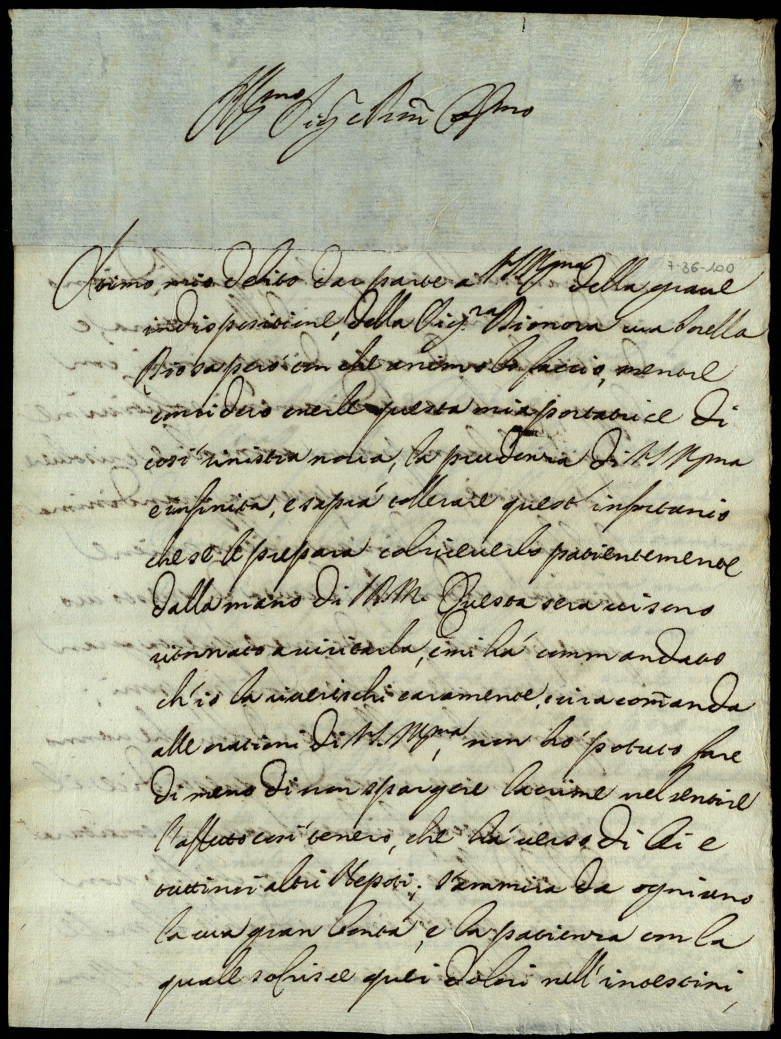 Ill.mo Sig.r e Rm̃ Sig.mo
7-36-100
Stimo mio debito dar parte a V.S.Rma della graue
indispositione, della Sig.ra Dionora sua sorella
Dio sa però con che animo lo faccio, mentre
considero esserle questa mia portatrice di
così sinistra noua, la prudenza di V.S. Rma
e infinita, e saprà tollerare quest' infortunio
che se le prepara col riceuerlo patientemente
dalla mano di Questa sera ui sono
ritornato a uisitarla, e mi hà commandato
ch'io la riuerischi caramente, e si racom̃anda
alle orationi di V.S. Rma, non hò potuto fare
di meno di non spargere lacrime nel sentire
l'affetto così tenero, che hà uerso di lei e
tutti noi altri Nepoti; s'ammira da ogni uno
la sua gran bontà, e la patienza con la
quale soffrisce quei dolori nell'intestini,